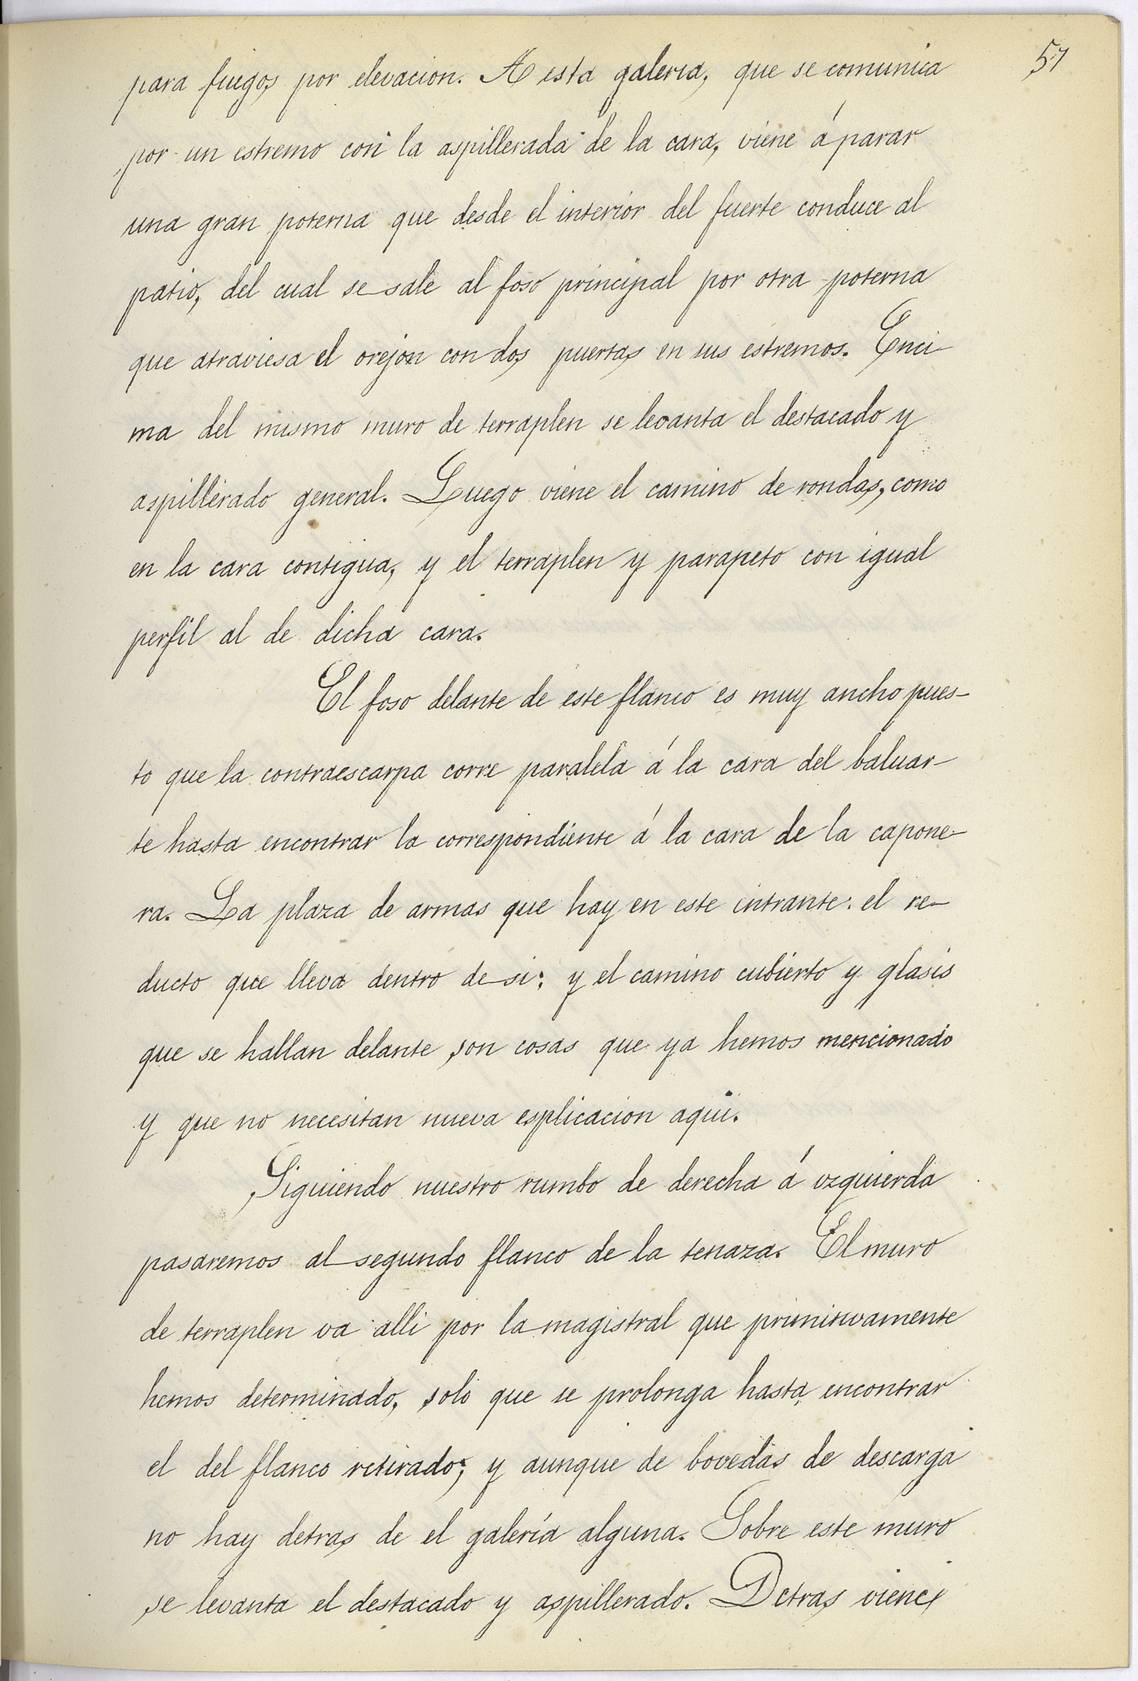 57
para fuegos por elevacion. A esta galeria, que se comunica
por un estremo con la aspillerada de la cara, viene á parar
una gran poterna que desde el interior del fuerte conduce al
patio, del cual se sale al foso principal por otra poterna
que atraviesa el orejon con dos puertas en sus estremos. Enci-
ma del mismo muro de terraplen se levanta el destacado y
aspillerado general. Luego viene el camino de rondas, como
en la cara contigua, y el terraplen y parapeto con igual
perfil al de dicha cara.
El foso delante de este flanco es muy ancho pues-
to que la contraescarpa corre paralela á la cara del baluar-
te hasta encontrar la correspondiente á la cara de la capone-
ra. La plaza de armas que hay en este intrante: el re-
ducto que lleva dentro de si: y el camino cubierto y glasis
que se hallan delante, son cosas que ya hemos mencionado
y que no necesitan nueva esplicacion aqui.
Siguiendo nuestro rumbo de derecha á izquierda
pasaremos al segundo flanco de la tenaza. El muro
de terraplen va alli por la magistral que primitivamente
hemos determinado, solo que se prolonga hasta encontrar
el del flanco retirado; y aunque de bovedas de descarga
no hay detras de el galería alguna. Sobre este muro
se levanta el destacado y aspillerado. Detras viene